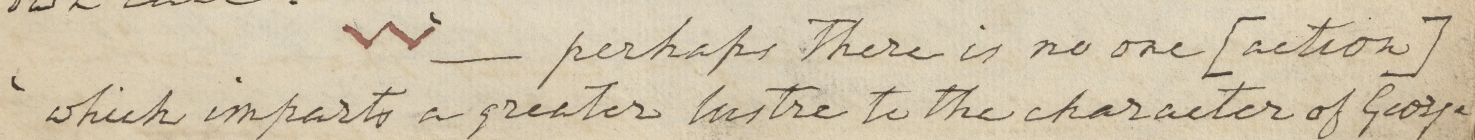 — perhaps There is no one [action]
‘ which imparts a greater lustre to the character of George